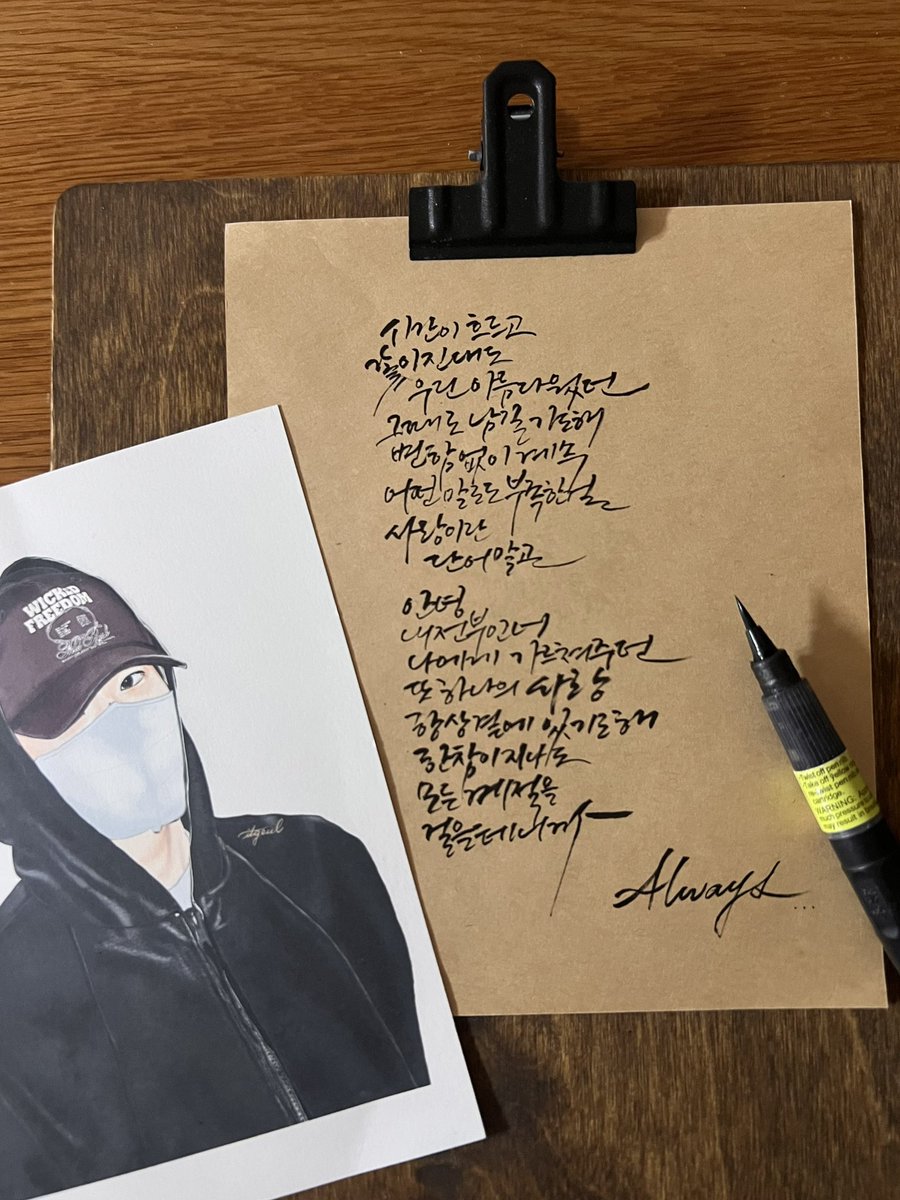 시간이 흐르고
꽃이 진대도
우린 아름다웠던
그대로 남길 기도해
변함없이 계속
어떤 말로도 부족한 걸
사랑이란
단어 말곤
안녕
내 전부인 너
나에게 가르쳐주던
또 하나의 사랑
항상 곁에 있기로 해
한참이 지나도
모든 계절을
걸을 테니까
Always...
WICKED
FREEDOM
Twist off pen
Take off yellow
cartridge.
WARNING:
much pressure
may result in